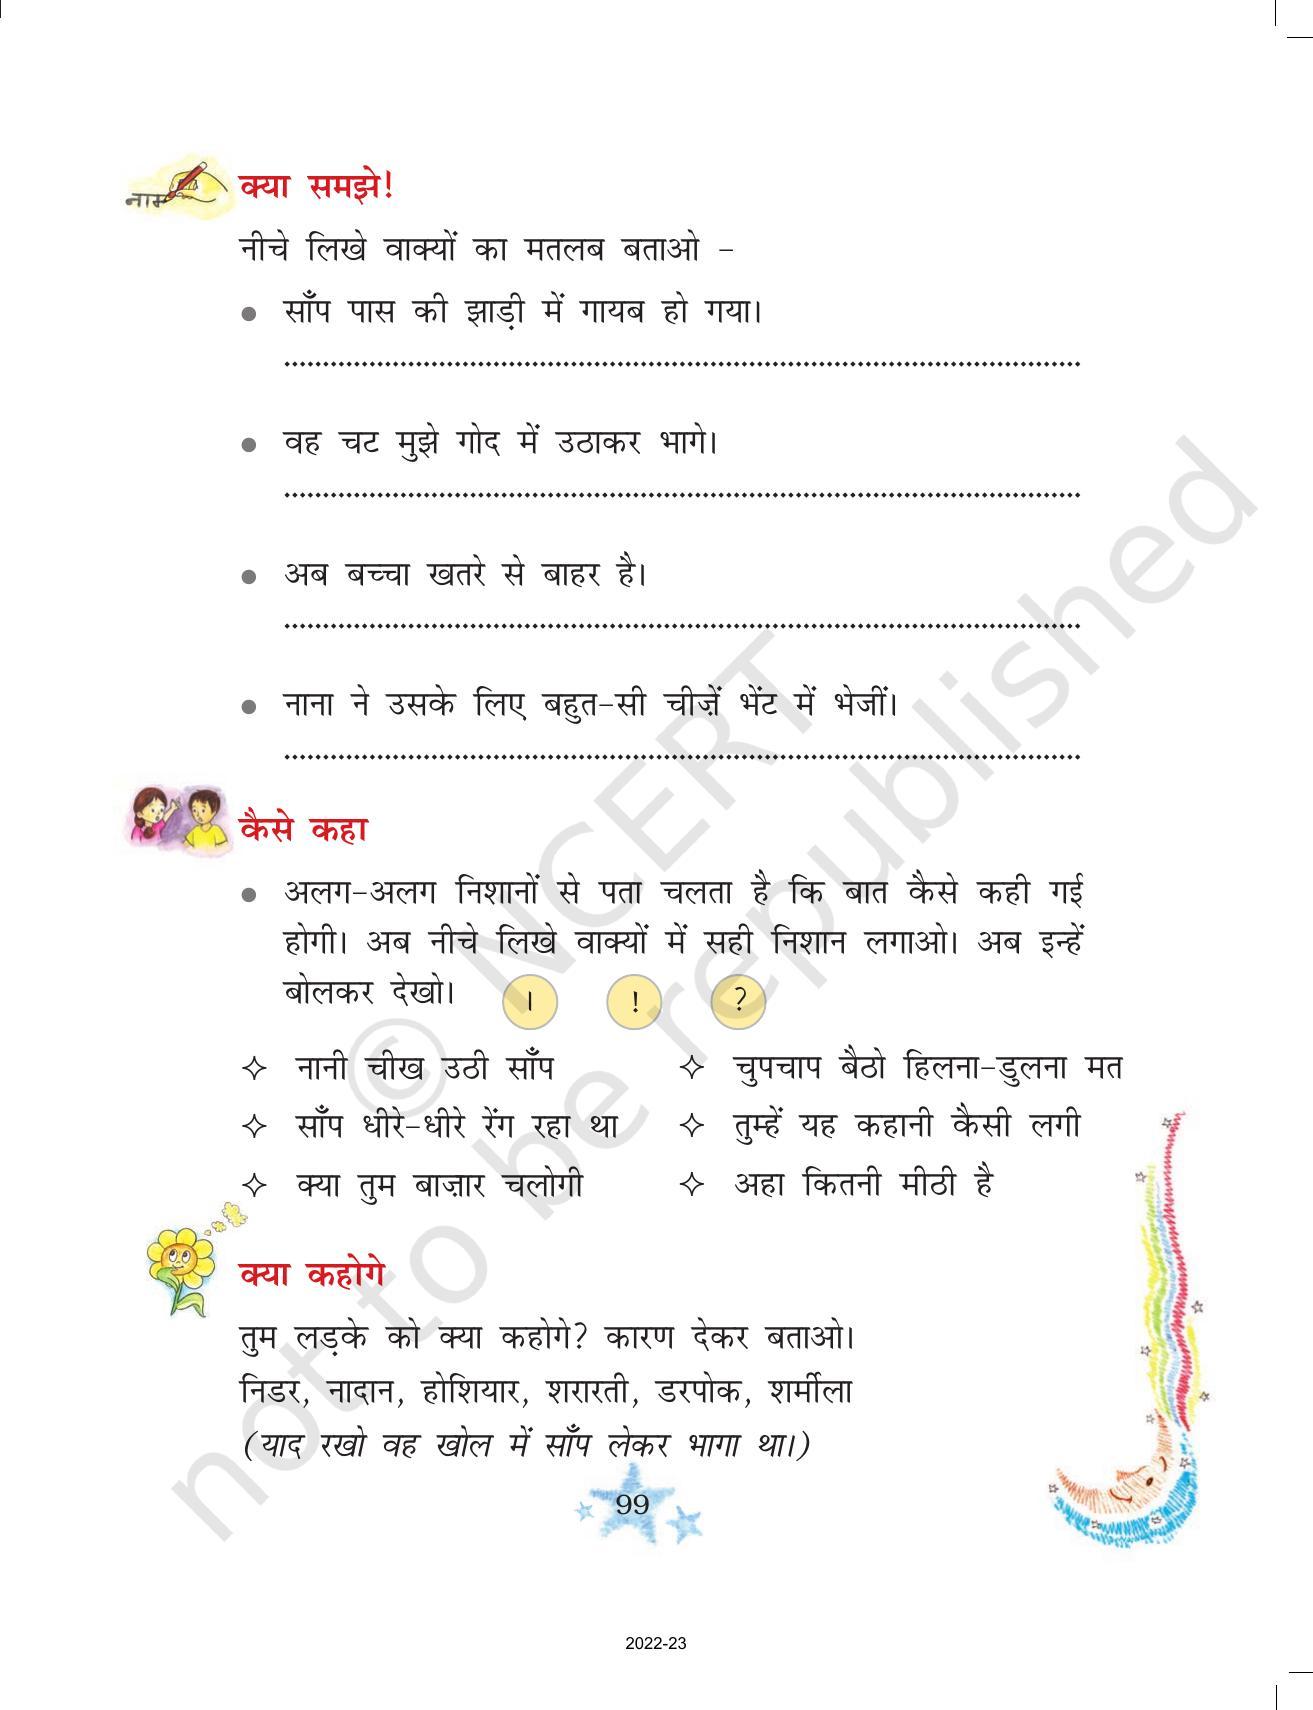 नाम
क्या समझे!
नीचे लिखे वाक्यों का मतलब बताओ –
● साँप पास की झाड़ी में गायब हो गया।
● वह चट मुझे गोद में उठाकर भागे।
● अब बच्चा खतरे से बाहर है।
● नाना ने उसके लिए बहुत-सी चीज़ें भेंट में भेजीं।
कैसे कहा
● अलग-अलग निशानों से पता चलता है कि बात कैसे कही गई
होगी। अब नीचे लिखे वाक्यों में सही निशान लगाओ। अब इन्हें
बोलकर देखो। । ! ?
✧ नानी चीख उठी साँप ✧ चुपचाप बैठो हिलना-डुलना मत
✧ साँप धीरे-धीरे रेंग रहा था ✧ तुम्हें यह कहानी कैसी लगी
✧ क्या तुम बाज़ार चलोगी ✧ अहा कितनी मीठी है
क्या कहोगे
तुम लड़के को क्या कहोगे? कारण देकर बताओ।
निडर, नादान, होशियार, शरारती, डरपोक, शर्मीला
(याद रखो वह खोल में साँप लेकर भागा था।)
99
2022-23
© NCERT
not to be republished